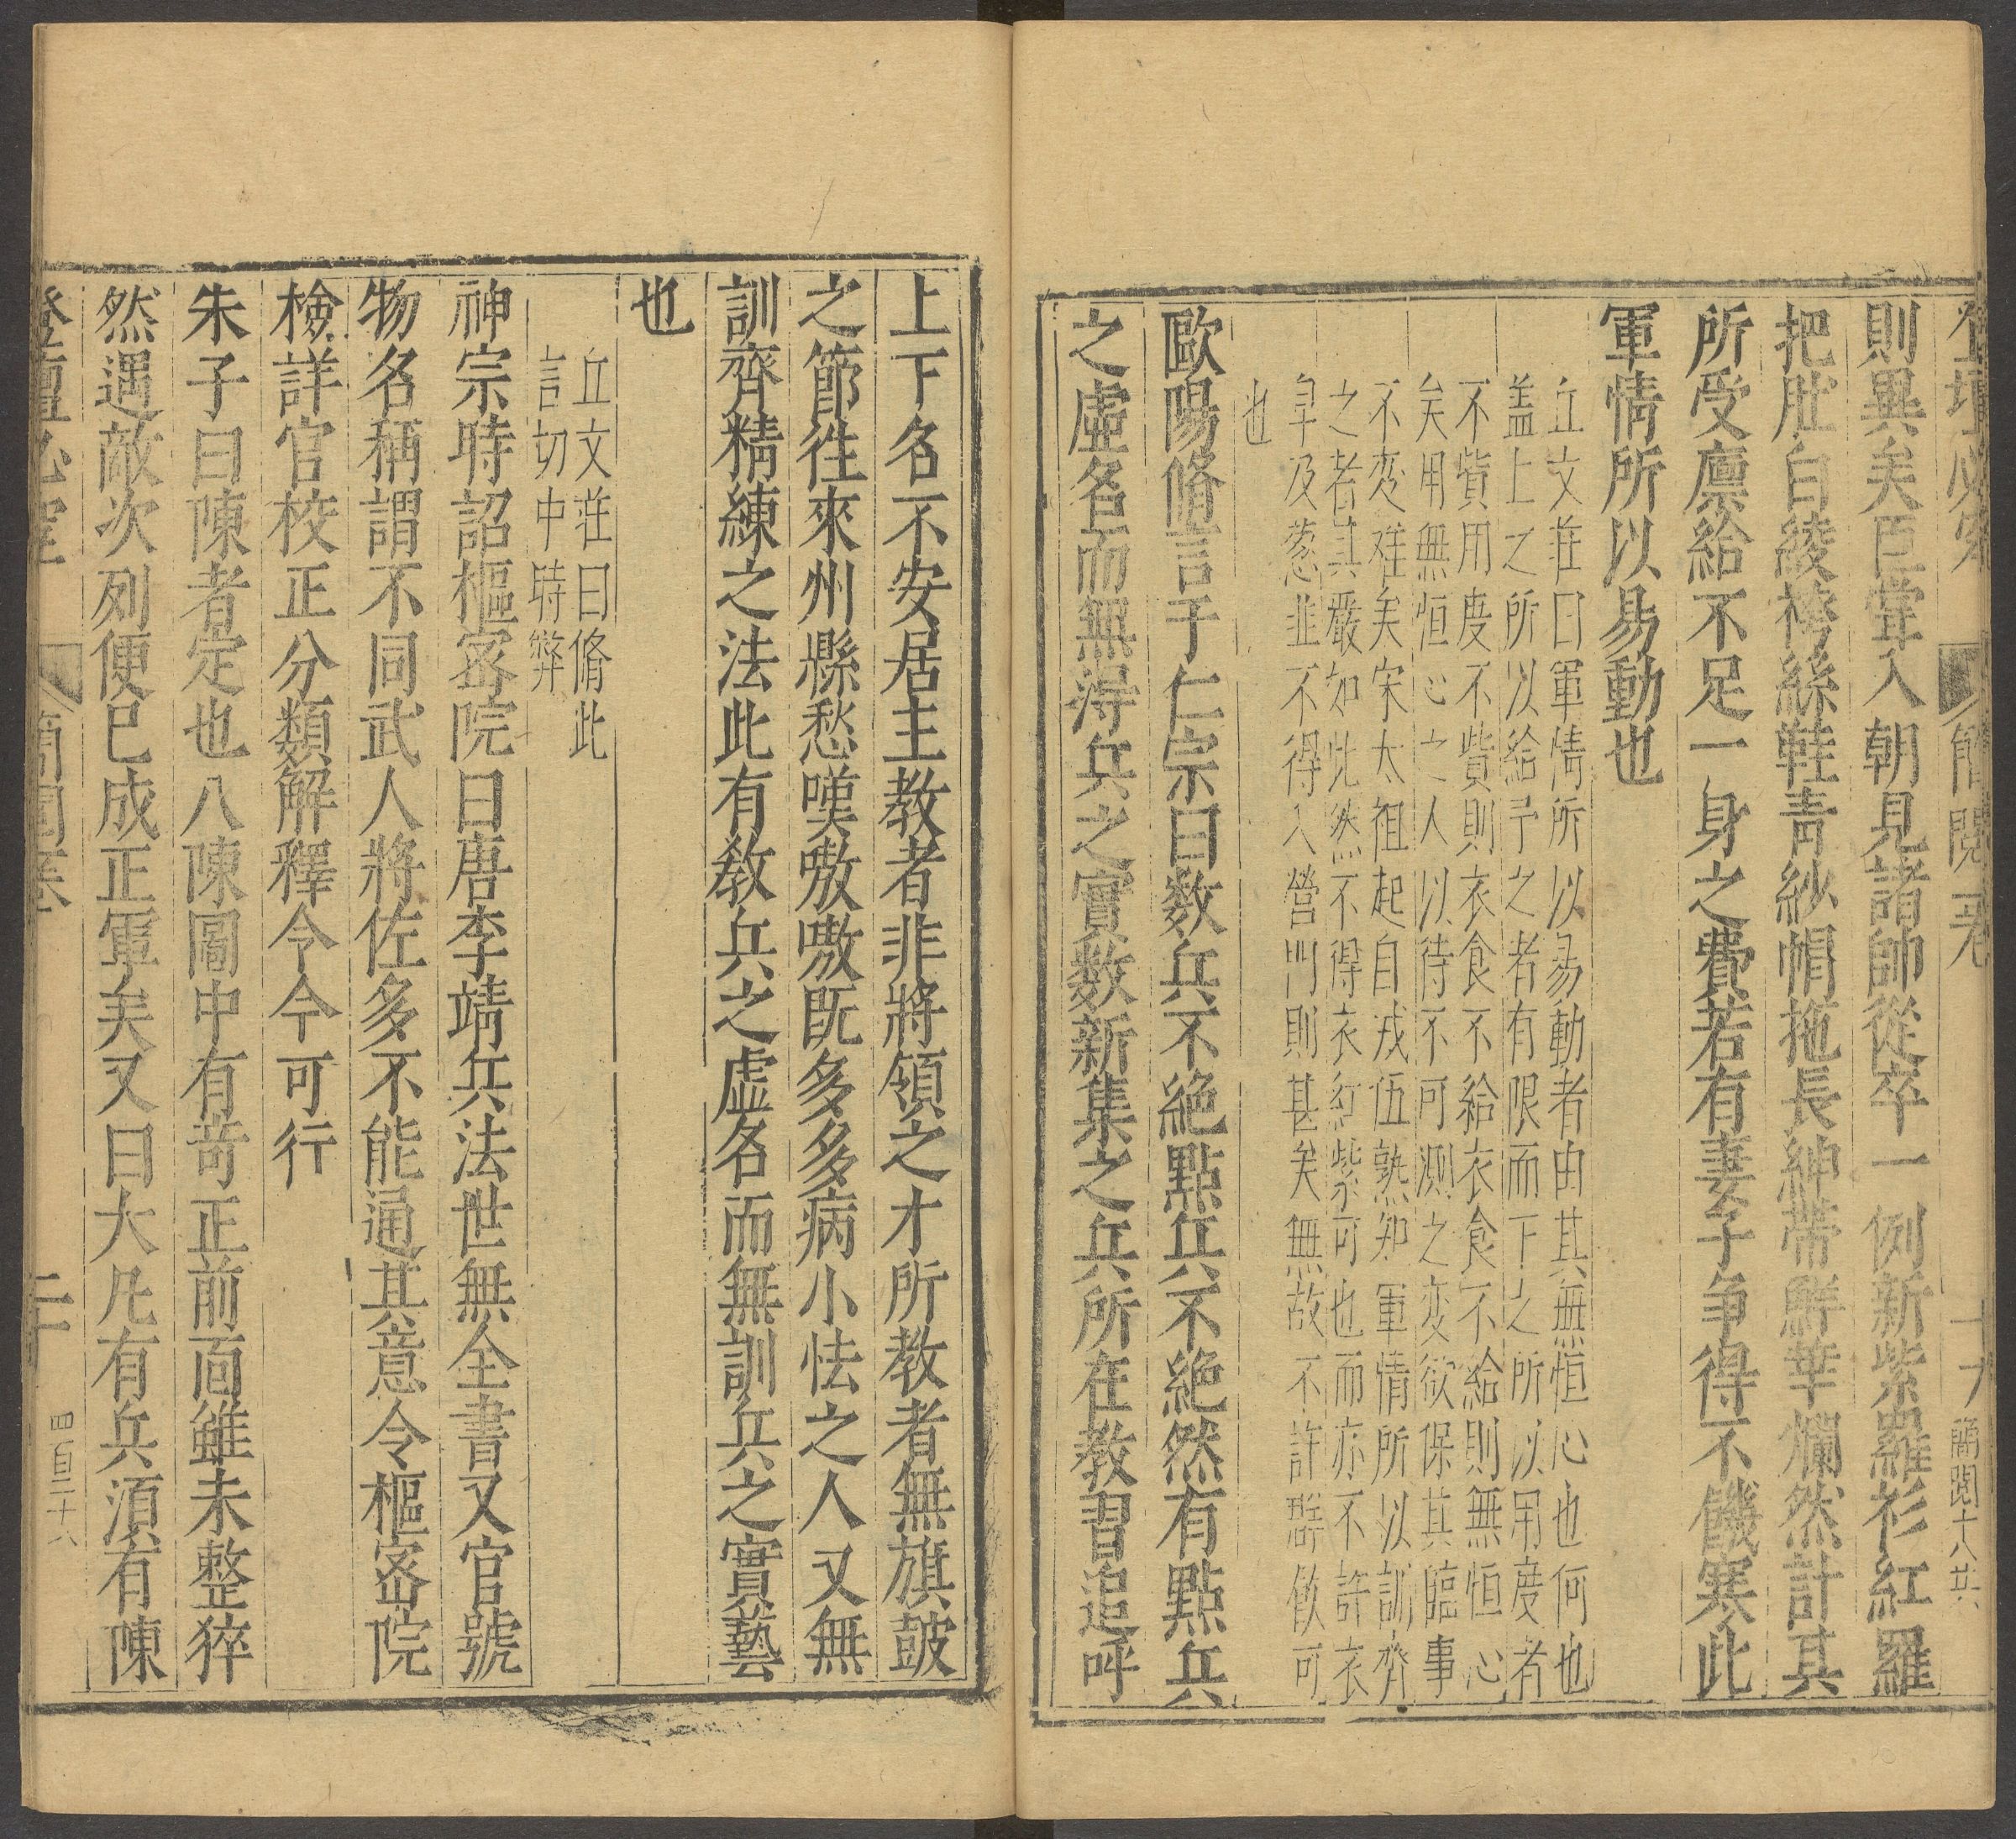 則異矣臣嘗入朝見諸帥從卒一例新紫羅衫紅羅
把肚白綾袴絲鞋靑紗帽拖長紳帶鮮華爛然計其
所受廪給不足一身之費若有妻子爭得不饑寒此
軍情所以易動也
丘文莊曰軍情所以易動者由其無恒心也何也
盖上之所以給予之者有限而下之所以用度者
不貲用度不貲則衣食不給衣食不給則無恒心
矣用無恒心之人以待不可測之变欲保其臨事
不变难矣宋太祖起自戎伍熟知軍情所以訓齊
之者其嚴如此然不得衣紅紫可也而亦不許衣
皁及葱韭不得入營門則甚矣無故不許群飲可
也
歐陽脩言于仁宗曰数兵不絶點兵不絶然有點兵
之虛名而無得兵之實数新集之兵所在教習追呼
上下名不安居主教者非將領之才所教者無旗鼓
之節往來州縣愁嘆嗷嗷旣多多病小怯之人又無
訓齊精練之法此有教兵之虛名而無訓兵之實藝
也
丘文莊曰脩此
言切中時弊
神宗時詔樞密院曰唐李靖兵法世無全書又官號
物名稱謂不同武人將佐多不能通其意令樞密院
檢詳官校正分類解釋令今可行
朱子曰陳者定也八陳圖中有竒正前面雖未整猝
然遇敵次列便已成正軍矣又曰大凡有兵須有陳
登壇必究
簡閱卷
二十
四百三十六